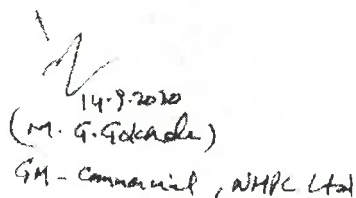 14.9.2020
(M. G. Gokhale)
GM - Commercial, NHPC Ltd